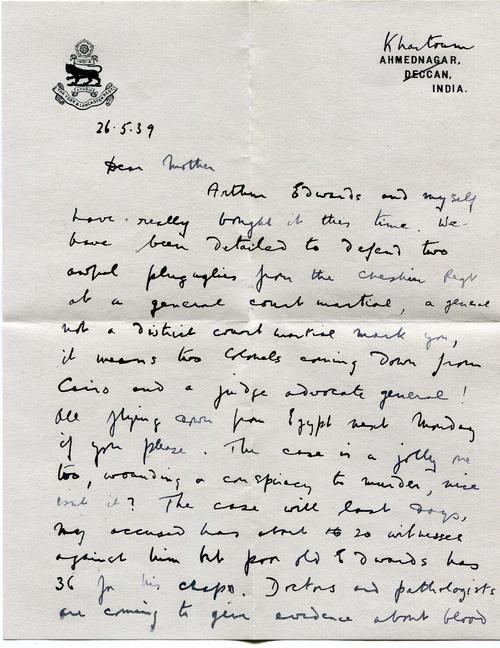 Khartoum
AHMEDNAGAR,
DECCAN,
INDIA.
INDIA
26.5.39
Dear Mother
Arthur Edwards and myself
have really bought it this time. We
have been detailed to defend two
awful pluguglies from the Cheshire Regt
at a general court martial, a general
not a district court martial mark you,
it means two Colonels coming down from
Cairo and a judge advocate general!
All flying down from Egypt next Monday
if you please. The case is a jolly one
too, wounding & conspiracy to murder, nice
isn't it? The case will last days,
my accused has about 20 witnesses
against him but poor old Edwards has
36 for his chaps. Doctors and pathologists
are coming to give evidence about blood